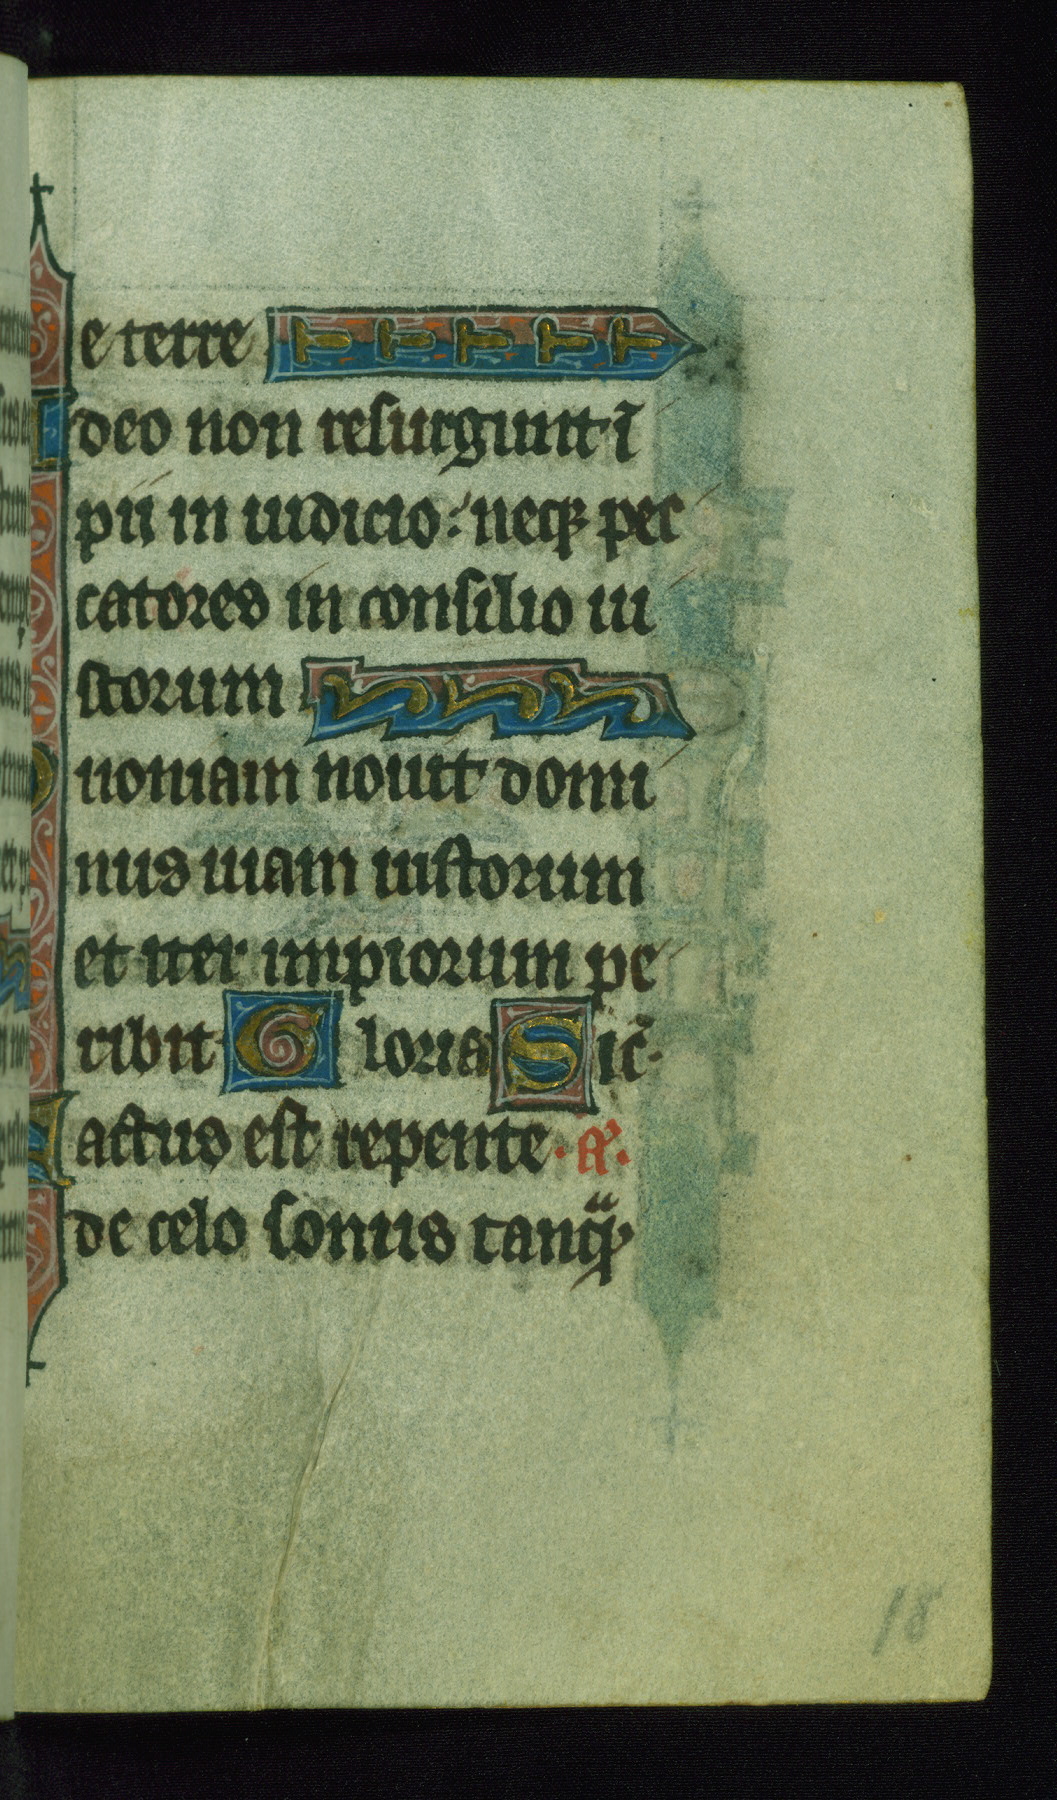 e terre
I deo non resurgunt ī
pii in iudicio: neqꝫ pec
catores in consilio iu
storum
uoniam nouit domi
nus uiam iustorum
et iter impiorum pe
ribit Gloria Sic̄.
actus est repente. A.
de celo sonus tanqͣꝫ
18